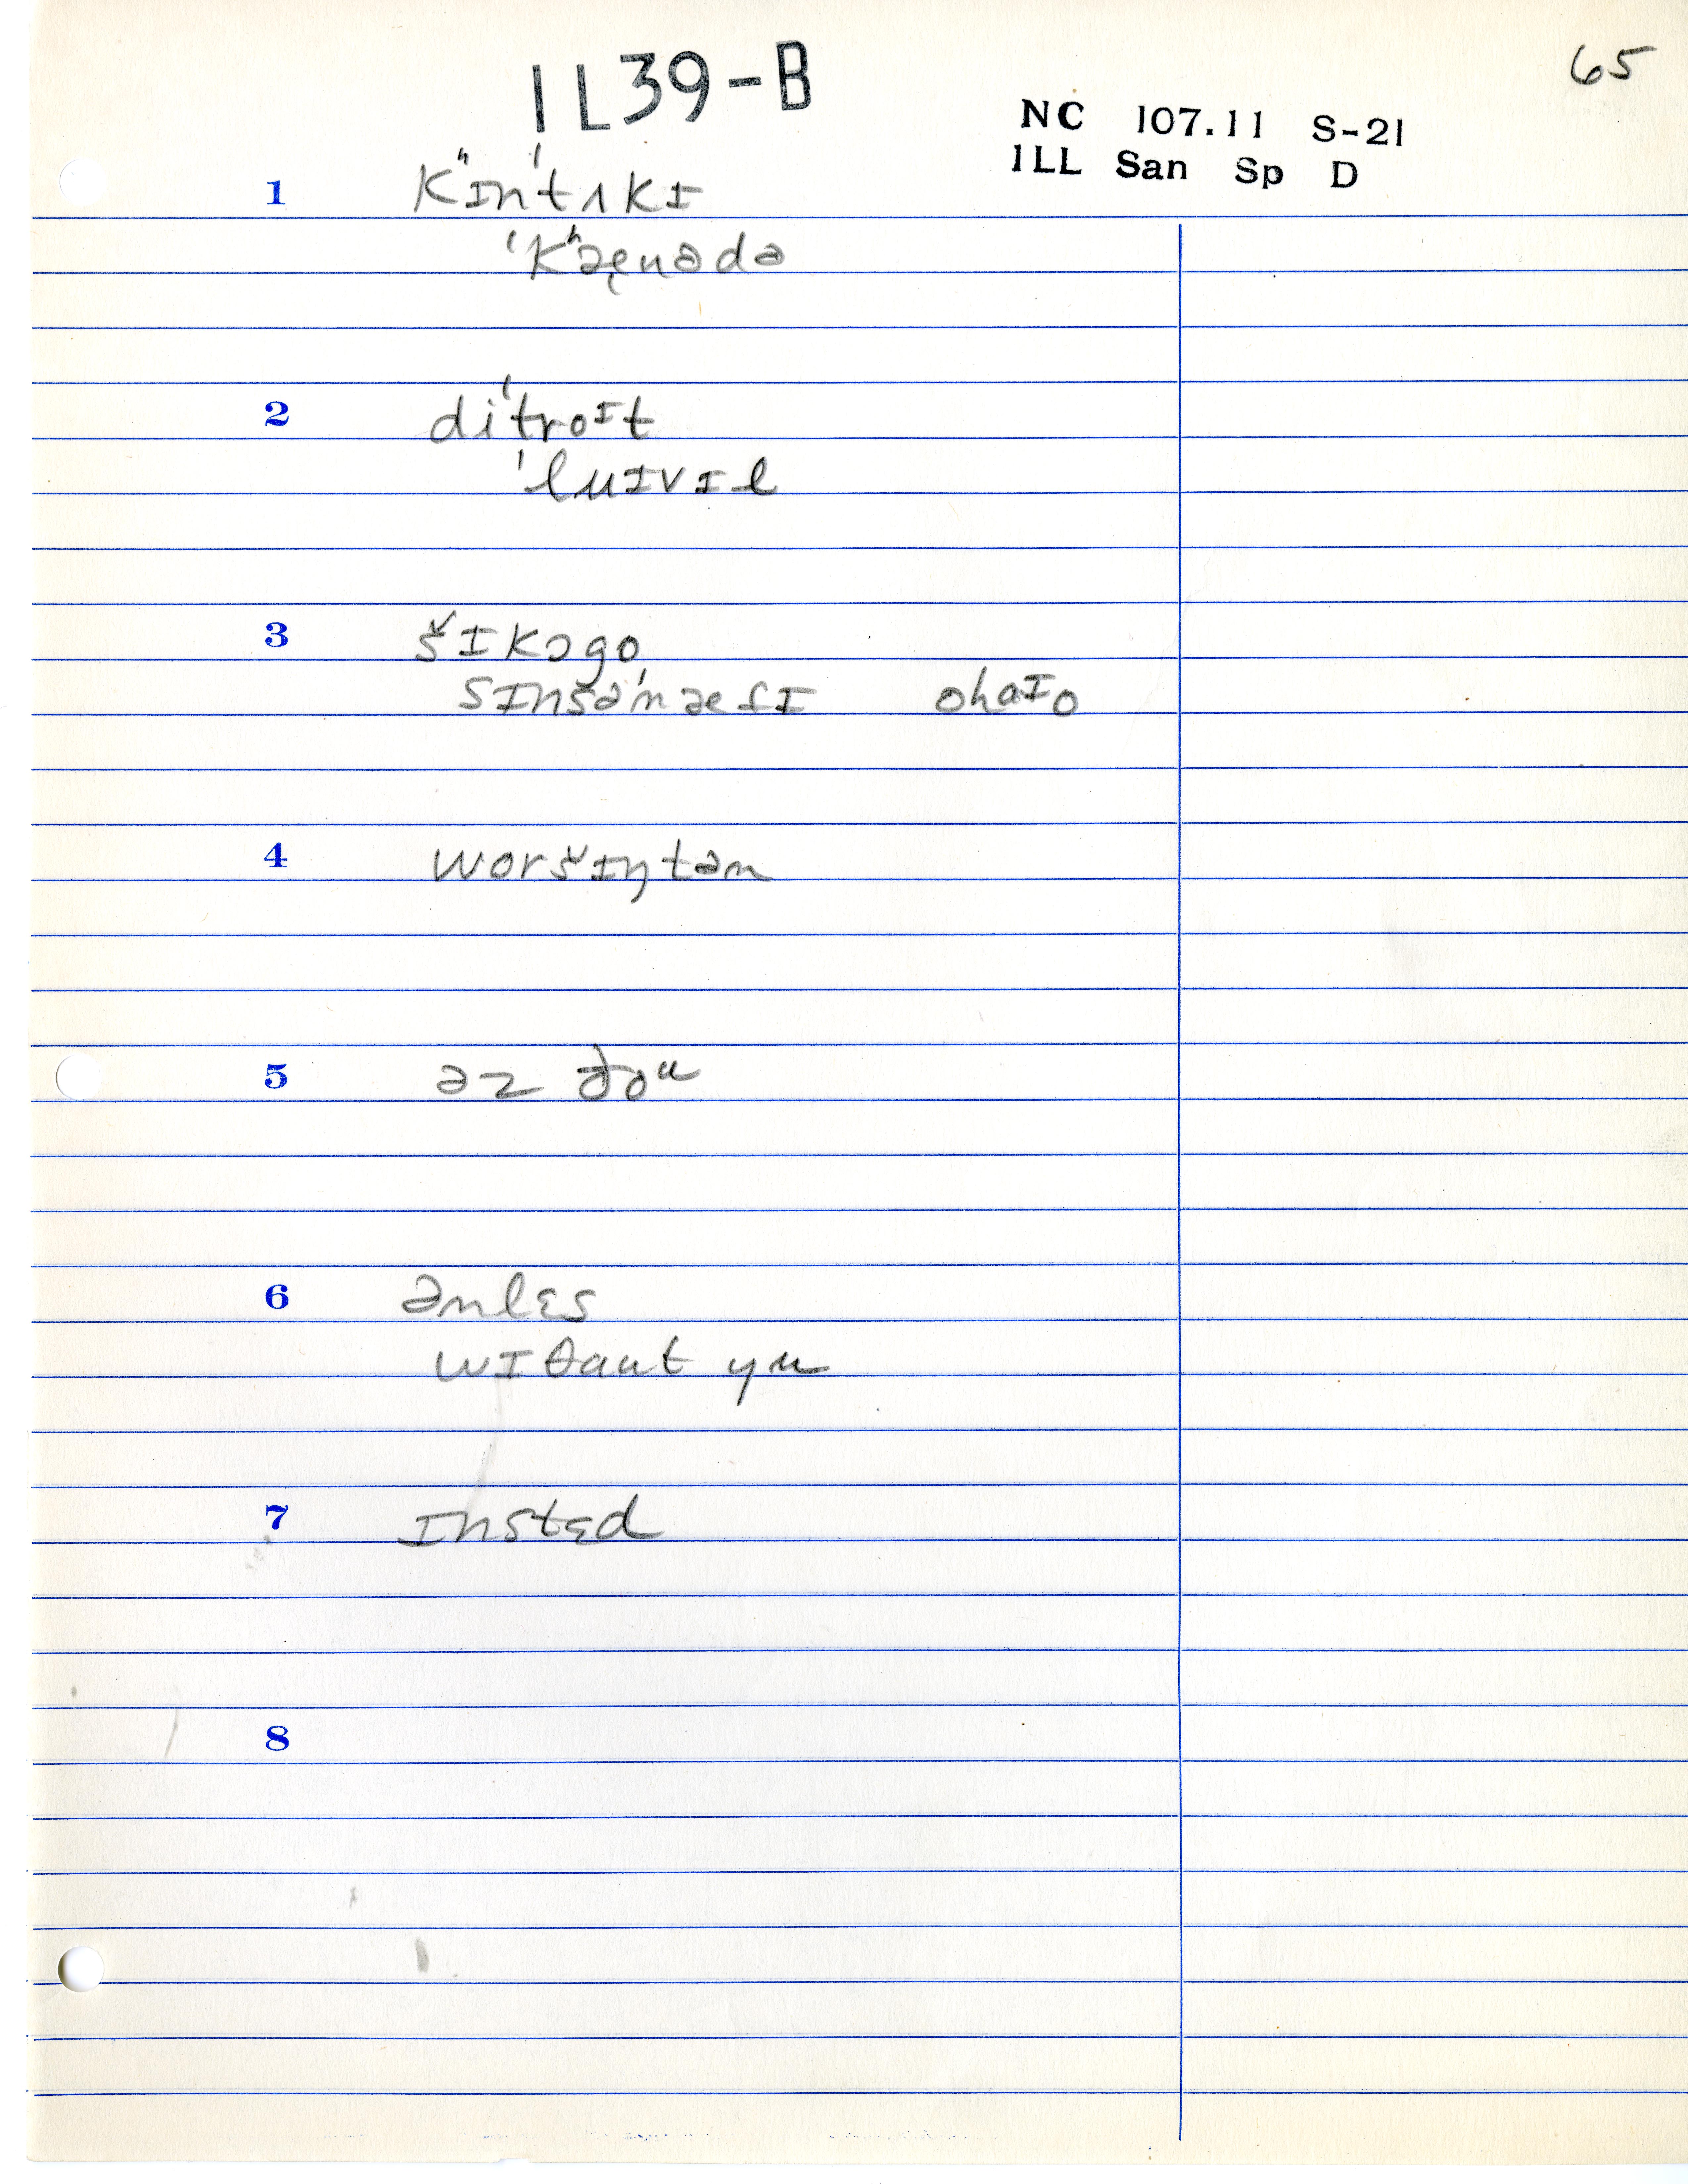 IL39-B
65
NC 107.11 S-21
ILL San Sp D
1 Kʰɪnˈtʌkɪ
ˈKʰæ̨nədə
2 diˈtroɪt
ˈluɪvɪl
3 šɪkɔgo
ohaɪo
4 woršɪŋtən
5 əz ðoᵘ
6 ənlɛs
wɪθaut yu
7 ɪnstɛd
8